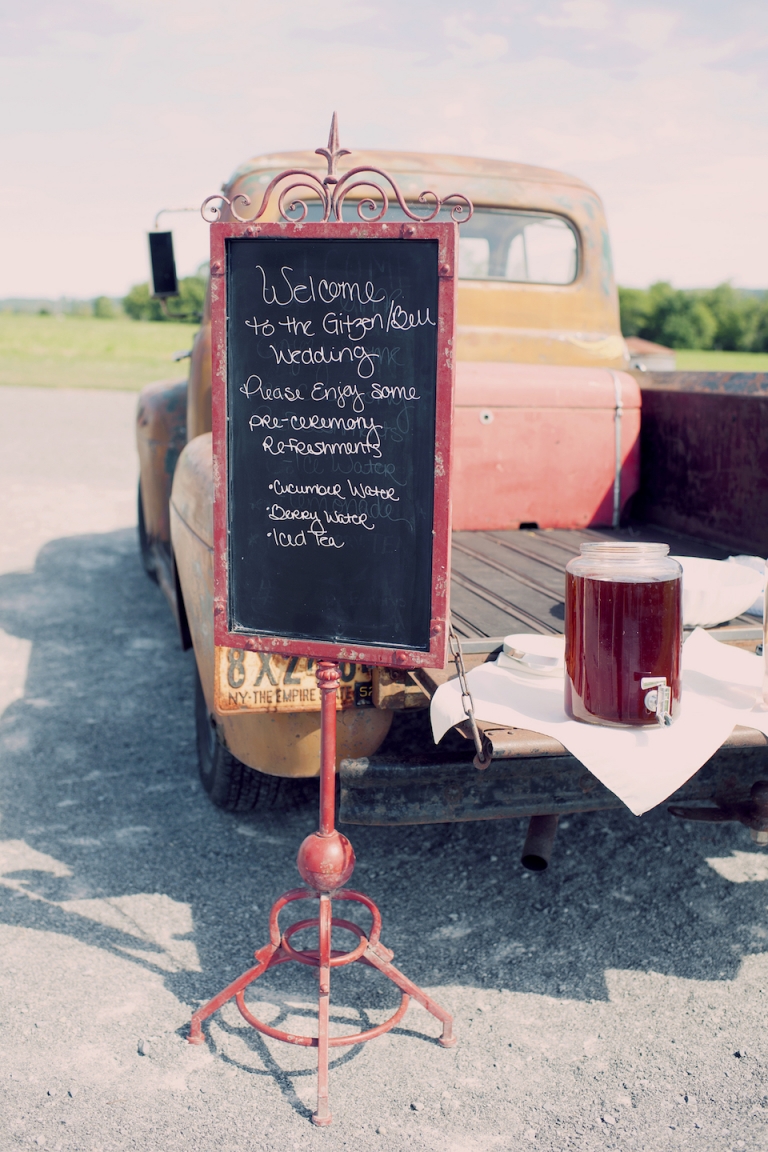 Welcome
to the Gitzen/Bell
Wedding
Please Enjoy some
pre-ceremony
Refreshments
•Cucumber Water
•Berry Water
•Iced Tea
8XZ
NY•THE EMPIRE STATE 52